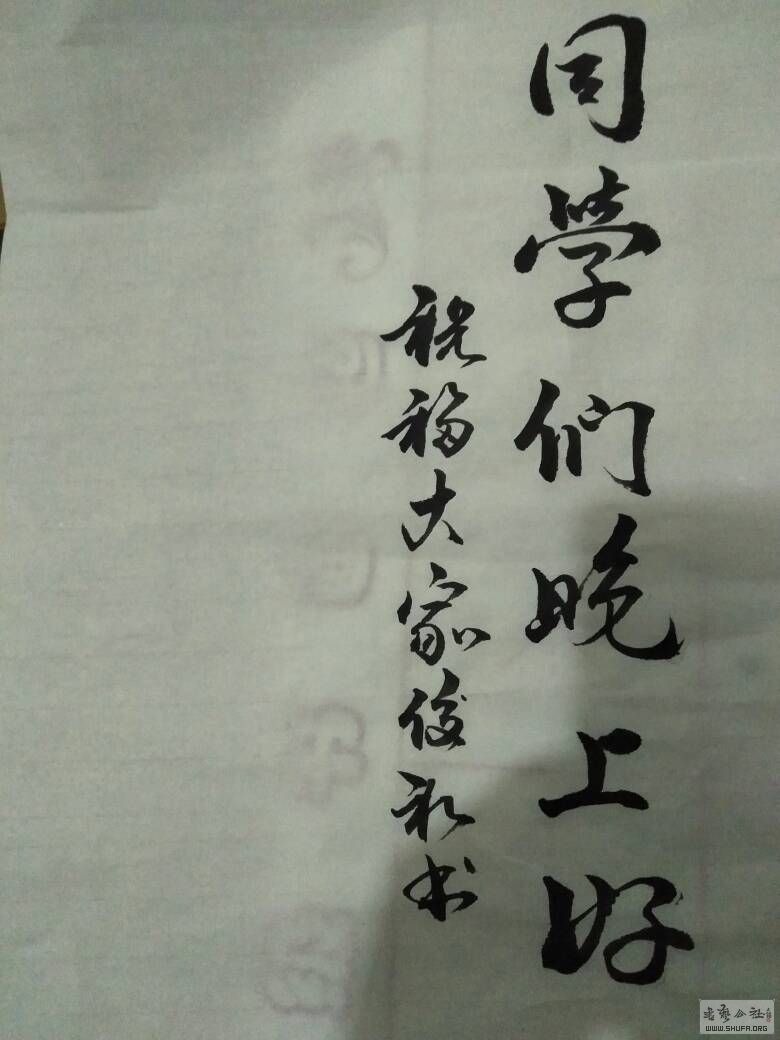 同学们晚上好
祝福大家俊礼书
书艺公社
WWW.SHUFA.ORG